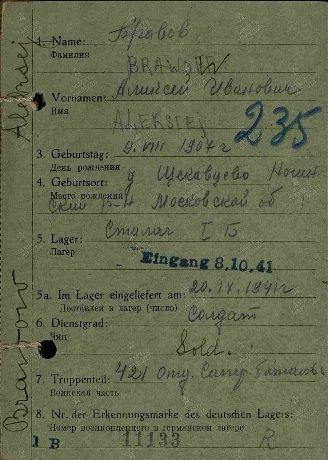 Aleksej
Brawowo
1. Name: Бравов
Фамилия
BRAWOW
Vornamen: Алексей Иванович
Имя
ALEKSIEJ
235
3. Geburtstag: 9. VIII 1907 г
День рождения
4. Geburtsort: д Щекавцево Ногин-
Место рождения
ский р-н Московской об
5. Lager: Сталаг I Б
Лагер
Eingang 8.10.41
5a. Im Lager eingeliefert am: 20.IX.1941г
Доставлен в лагер (число)
6. Dienstgrad: Солдат
Чин
Sold.
7. Truppenteil: 421 отд. Сапер. Баталь
Воинская часть
8. Nr. der Erkennungsmarke des deutschen Lagers:
Номер возпановленного в германском лагере
1 B 11133 R